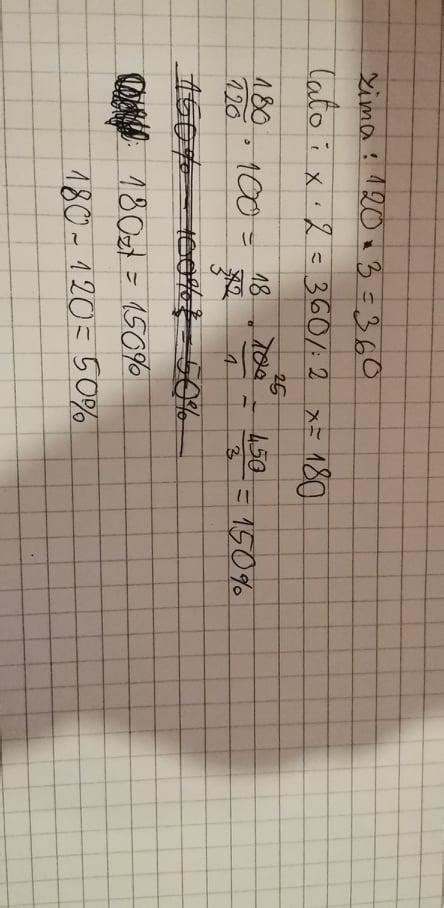 zima : 120 · 3 = 360
lato : x · 2 = 360 /: 2 x = 180
180/120 · 100 = 18/12 3 · 100 25/1 = 450/3 = 150%
150% - 100% = 50%
180zł = 150%
180 - 120 = 50%